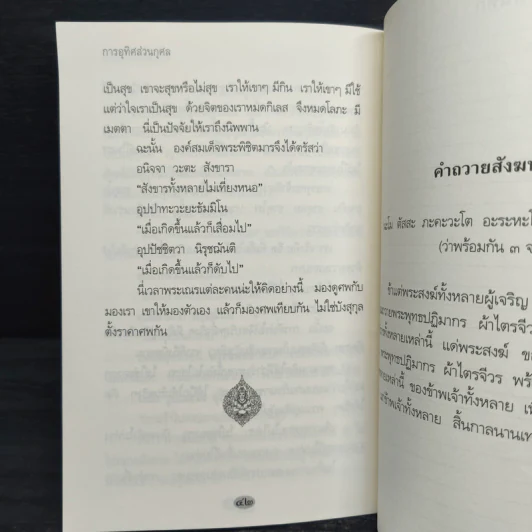 การอุทิศส่วนกุศล
เป็นสุข เขาจะสุขหรือไม่สุข เราให้เขาๆ มีกิน เราให้เขาๆ มีใช้
แต่ว่าใจเราเป็นสุข ด้วยจิตของเราหมดกิเลส จึงหมดโลภะ มี
เมตตา นี่เป็นปัจจัยให้เราถึงนิพพาน
ฉะนั้น องค์สมเด็จพระพิชิตมารจึงได้ตรัสว่า
อนิจจา วะตะ สังขารา
“สังขารทั้งหลายไม่เที่ยงหนอ”
อุปปาทะวะยะธัมมิโน
“เมื่อเกิดขึ้นแล้วก็เสื่อมไป”
อุปปัชชิตวา นิรุชฌันติ
“เมื่อเกิดขึ้นแล้วก็ดับไป”
นี่เวลาพระเณรแต่ละคนน่ะให้คิดอย่างนี้ มองดูศพกับ
มองเรา เขาให้มองตัวเอง แล้วก็มองศพเทียบกัน ไม่ใช่บังสุกุล
ตั้งราคาศพกัน
๔๒
คำถวายสังฆ
ตัสสะ ภะคะวะโต อะระหะ
(ว่าพร้อมกัน ๓ จ
ข้าแต่พระสงฆ์ทั้งหลายผู้เจริญ
พระพุทธปฏิมากร ผ้าไตรจีวร
ทั้งหลายเหล่านี้ แด่พระสงฆ์ ขอ
พระพุทธปฏิมากร ผ้าไตรจีวร พร้
เหล่านี้ ของข้าพเจ้าทั้งหลาย เพื่
ข้าพเจ้าทั้งหลาย สิ้นกาลนานเท